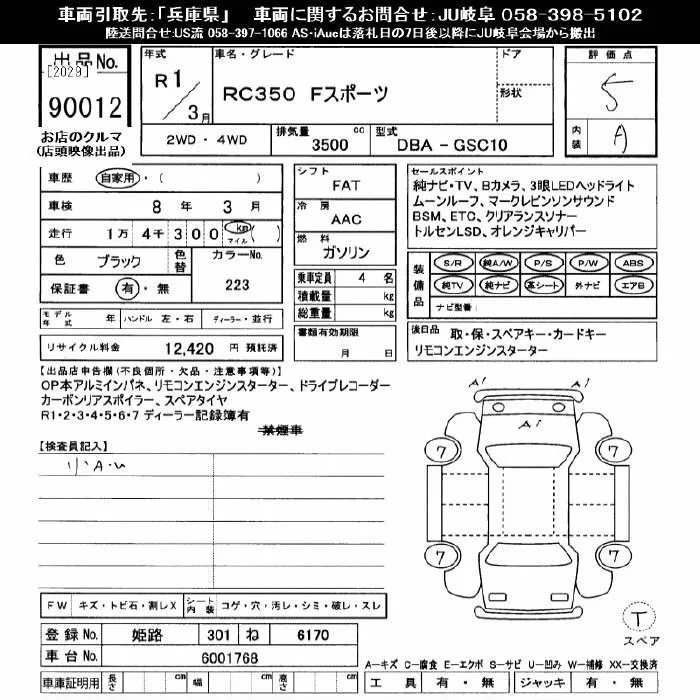 車両引取先:「兵庫県」 車両に関するお問合せ:JU岐阜 058-398-5102
陸送問合せ:US流 058-397-1066 AS-iAucは落札日の7日後以降にJU岐阜会場から搬出
出品No.
[2029]
90012
お店のクルマ
(店頭映像出品)
年式 車名・グレード ドア
R1/3月 RC350 Fスポーツ 形状
2WD・4WD 排気量 3500 cc 型式 DBA - GSC10
評価点
5
内装 A
車歴 自家用・( )
車検 8年 3月
走行 1万 4千 300 km マイル ( )
色 ブラック 色替 カラーNo.
保証書 有・無 223
モデル年式 年 ハンドル 左・右 ディーラー・並行
リサイクル料金 12,420 円 預託済
シフト
FAT
冷房
AAC
燃料
ガソリン
乗車定員 4 名
積載量 kg
総重量 kg
書類有効期限
月 日
セールスポイント
純ナビ・TV、Bカメラ、3眼LEDヘッドライト
ムーンルーフ、マークレビンソンサウンド
BSM、ETC、クリアランスソナー
トルセンLSD、オレンジキャリパー
装備品
S/R 純A/W P/S P/W ABS
純TV 純ナビ 革シート 外ナビ エアB
ナビ型番:
後日品 取・保・スペアキー・カードキー
リモコンエンジンスターター
【出品店申告欄(不良個所・欠品・注意事項等)】
OP本アルミインパネ、リモコンエンジンスターター、ドライブレコーダー
カーボンリアスポイラー、スペアタイヤ
R1・2・3・4・5・6・7 ディーラー記録簿有
禁煙車
【検査員記入】
小A・U
A1 A1
A1
7 7
7 7
T
スペア
FW キズ・トビ石・割レX シート内装 コゲ・穴・汚レ・シミ・破レ・スレ
登録No. 姫路 301 ね 6170
車台No. 6001768
車庫証明用 長さ cm 幅 cm 高さ cm
A―キズ C―腐食 E―エクボ S―サビ U―凹み W―補修 XX―交換済
工具 有・無 ジャッキ 有・無